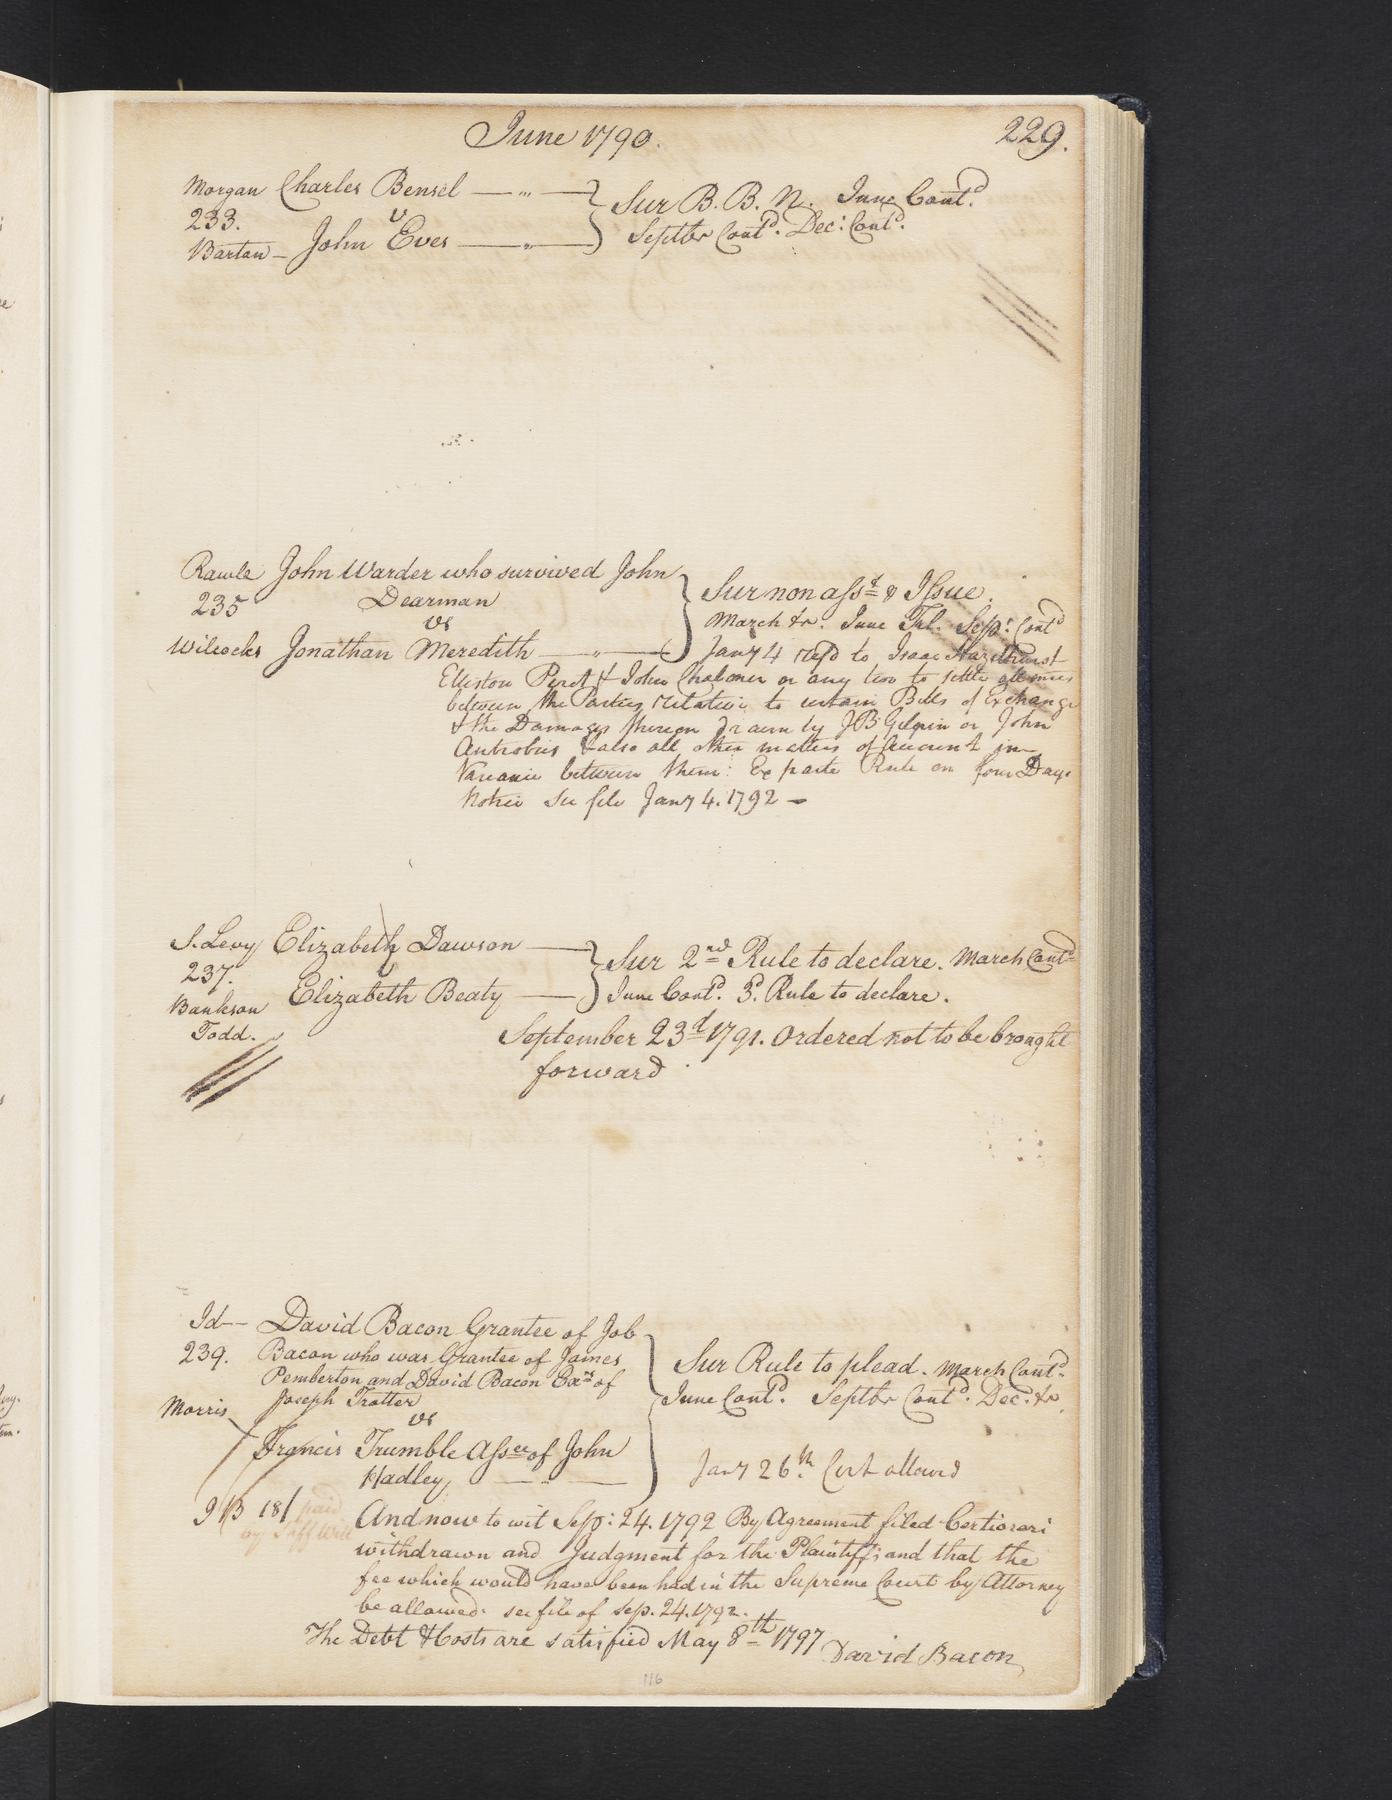 June 1790.
229.
Morgan Charles Bensel — „ —
Sur B. B. N. June Cont.d
233.
v
Septbr Cont.d Dec.r Cont.d
Barton — John Eves — „ —
Rawle John Warder who survived John
235 Dearman
Sur non asst & Issue.
vs
March &c. June Trl. Sepr. Contd
Wilcocks Jonathan Meredith — „ —
Jany 4 refd to Isaac Hazlehurst
Elliston Perot & John Chaloner or any two to settle all
between the Parties relative to certain Bills of Exchange
& the Damages thereon drawn by J B Gilpin or John
Antrobus & also all other matters of Account in
Variance between them: Ex parte Rule on four Days
Notice see file Jany 4. 1792 —
S. Levy Elizabeth Dawson —
Sur 2nd Rule to declare. March Contd
237. v
June Cont.d 3.d Rule to declare.
Bankson Elizabeth Beaty —
Todd.
September 23d 1791. Ordered not to be brought
forward
Id — David Bacon Grantee of Job
239. Bacon who was Grantee of James
Sur Rule to plead. March Cont.d
Pemberton and David Bacon Exrs of
June Cont.d Septbr Cont.d Dec. &c.
Morris Joseph Trotter
vs
Francis Trumble Assee of John
Hadley, — „ —
Jany 26th. Cert allowed
18/ paid
by
And now to wit Sep: 24. 1792 By Agreement filed Certiorari
withdrawn and Judgment for the Plaintiff; and that the
fee which would have been had in the Supreme Court by Attorney
be allowed. see file of Sep. 24. 1792.
The Debt & Costs are satisfied May 8th 1797
David Bacon
116